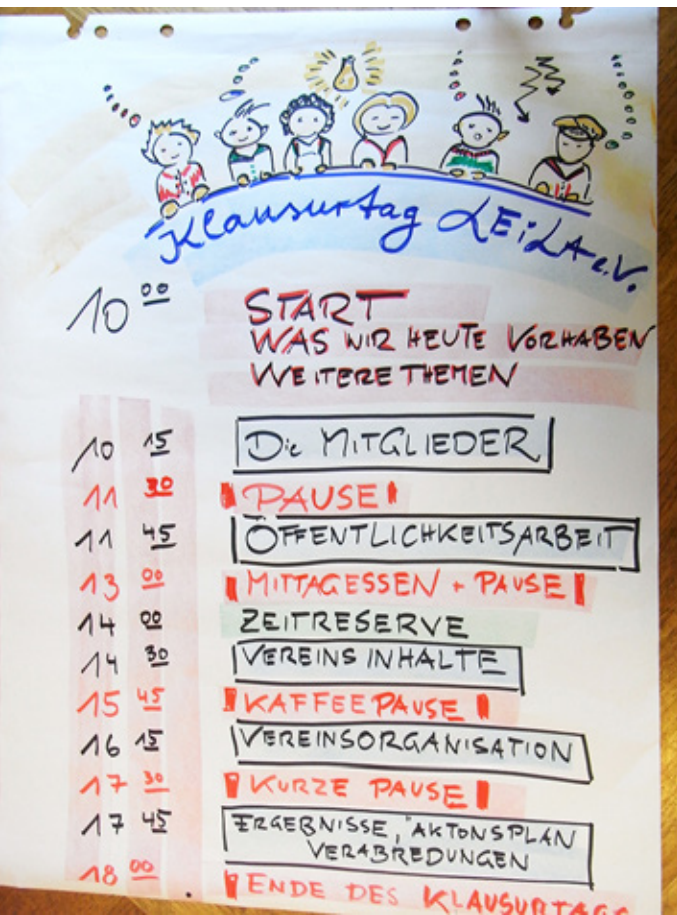 Klausurtag LEiLA e.V.
10 00 START
WAS WIR HEUTE VORHABEN
WEITERE THEMEN
10 15 Die MITGLIEDER
11 30 PAUSE
11 45 ÖFFENTLICHKEITSARBEIT
13 00 MITTAGESSEN + PAUSE
14 00 ZEITRESERVE
14 30 VEREINSINHALTE
15 45 KAFFEEPAUSE
16 15 VEREINSORGANISATION
17 30 KURZE PAUSE
17 45 ERGEBNISSE, AKTONSPLAN
VERABREDUNGEN
18 00 ENDE DES KLAUSURTAGS